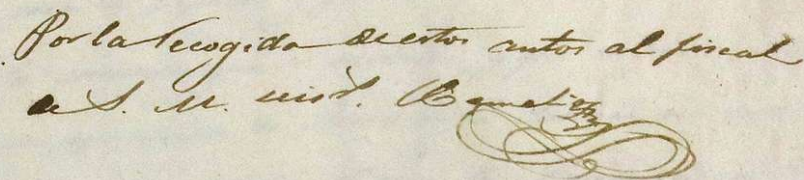 Por la recogida de estos autos al fiscal
de S. M.